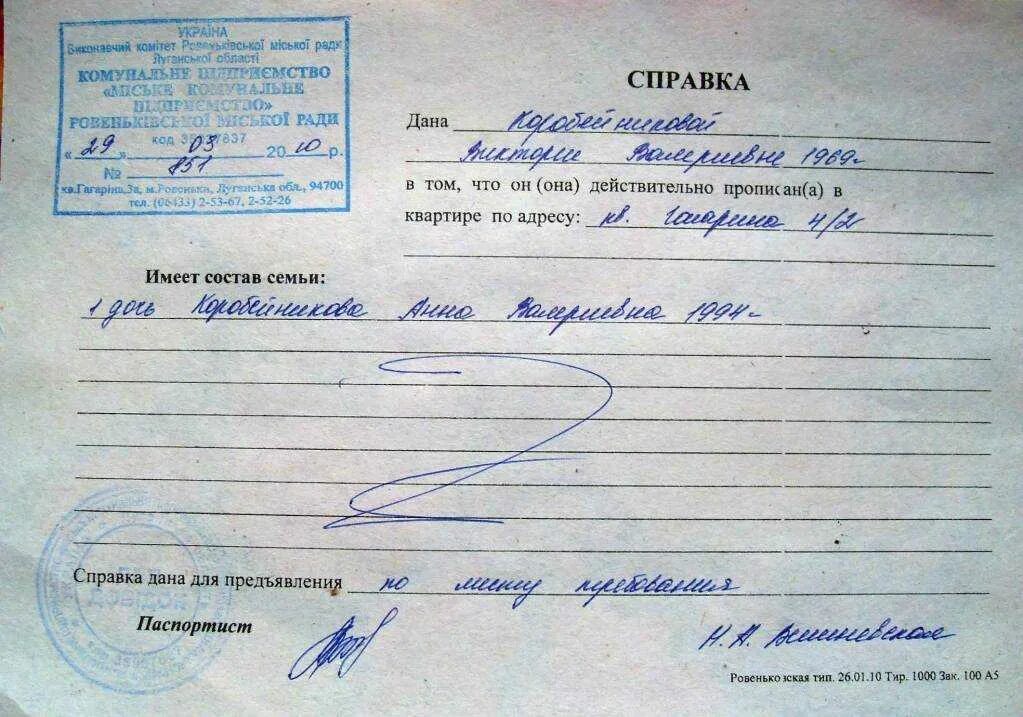 УКРАЇНА
Виконавчий комітет Ровеньківської міської ради
Луганської області
КОМУНАЛЬНЕ ПІДПРИЄМСТВО
«МІСЬКЕ КОМУНАЛЬНЕ
ПІДПРИЄМСТВО»
РОВЕНЬКІВСЬКОЇ МІСЬКОЇ РАДИ
код
« 29 » 03 2010 р.
№ 851
кв.Гагаріна,3а, м.Ровеньки, Луганська обл., 94700
тел. (06433) 2-53-67, 2-52-26
СПРАВКА
Дана Коробейниковой
Виктории Валериевне 1969г
в том, что он (она) действительно прописан(а) в
квартире по адресу: кв. Гагарина 4/2
Имеет состав семьи:
1 дочь Коробейникова Анна Валериевна 1994г
Справка дана для предъявления по месту требования
ДОВІДОК
Паспортист Н. А. Вишневская
Ровеньковская тип. 26.01.10 Тир. 1000 Зак. 100 А5